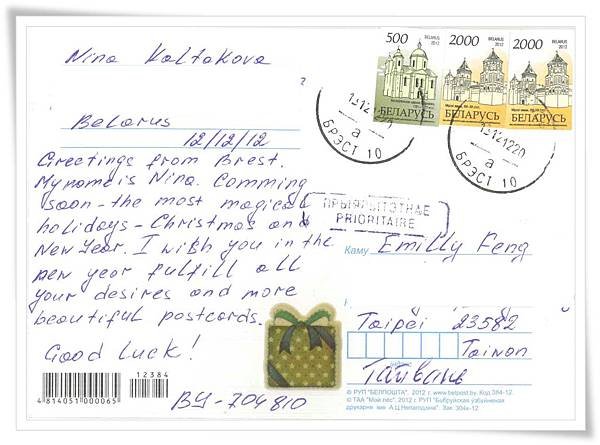 Nina Koltakova
Belarus
12/12/12
Greetings from Brest.
My name is Nina. Comming
soon - the most magical
holidays - Christmas and
New Year. I wish you in the
new year fulfill all
your desires and more
beautiful postcards.
Good Luck!
BY-704810
500
BELARUS
2012
БЕЛАРУСЬ
2000
BELARUS
2012
БЕЛАРУСЬ
2000
BELARUS
2012
БЕЛАРУСЬ
а
БРЭСТ 10
131212 20
а
БРЭСТ 10
ПРЫЯРЫТЭТНАЕ
PRIORITAIRE
Каму Emilly Feng
Taipei 23582
Taiwan
Тайвань
12384
4 814051 000065
© РУП "БЕЛПОШТА". 2012 г. www.belpost.by. Код 384-12.
© ТАА "Мой лёс". 2012 г. РУП "Бабруйская узбуйненая
друкарня імя А.Ц.Непагодзіна". Зак. 304к-12